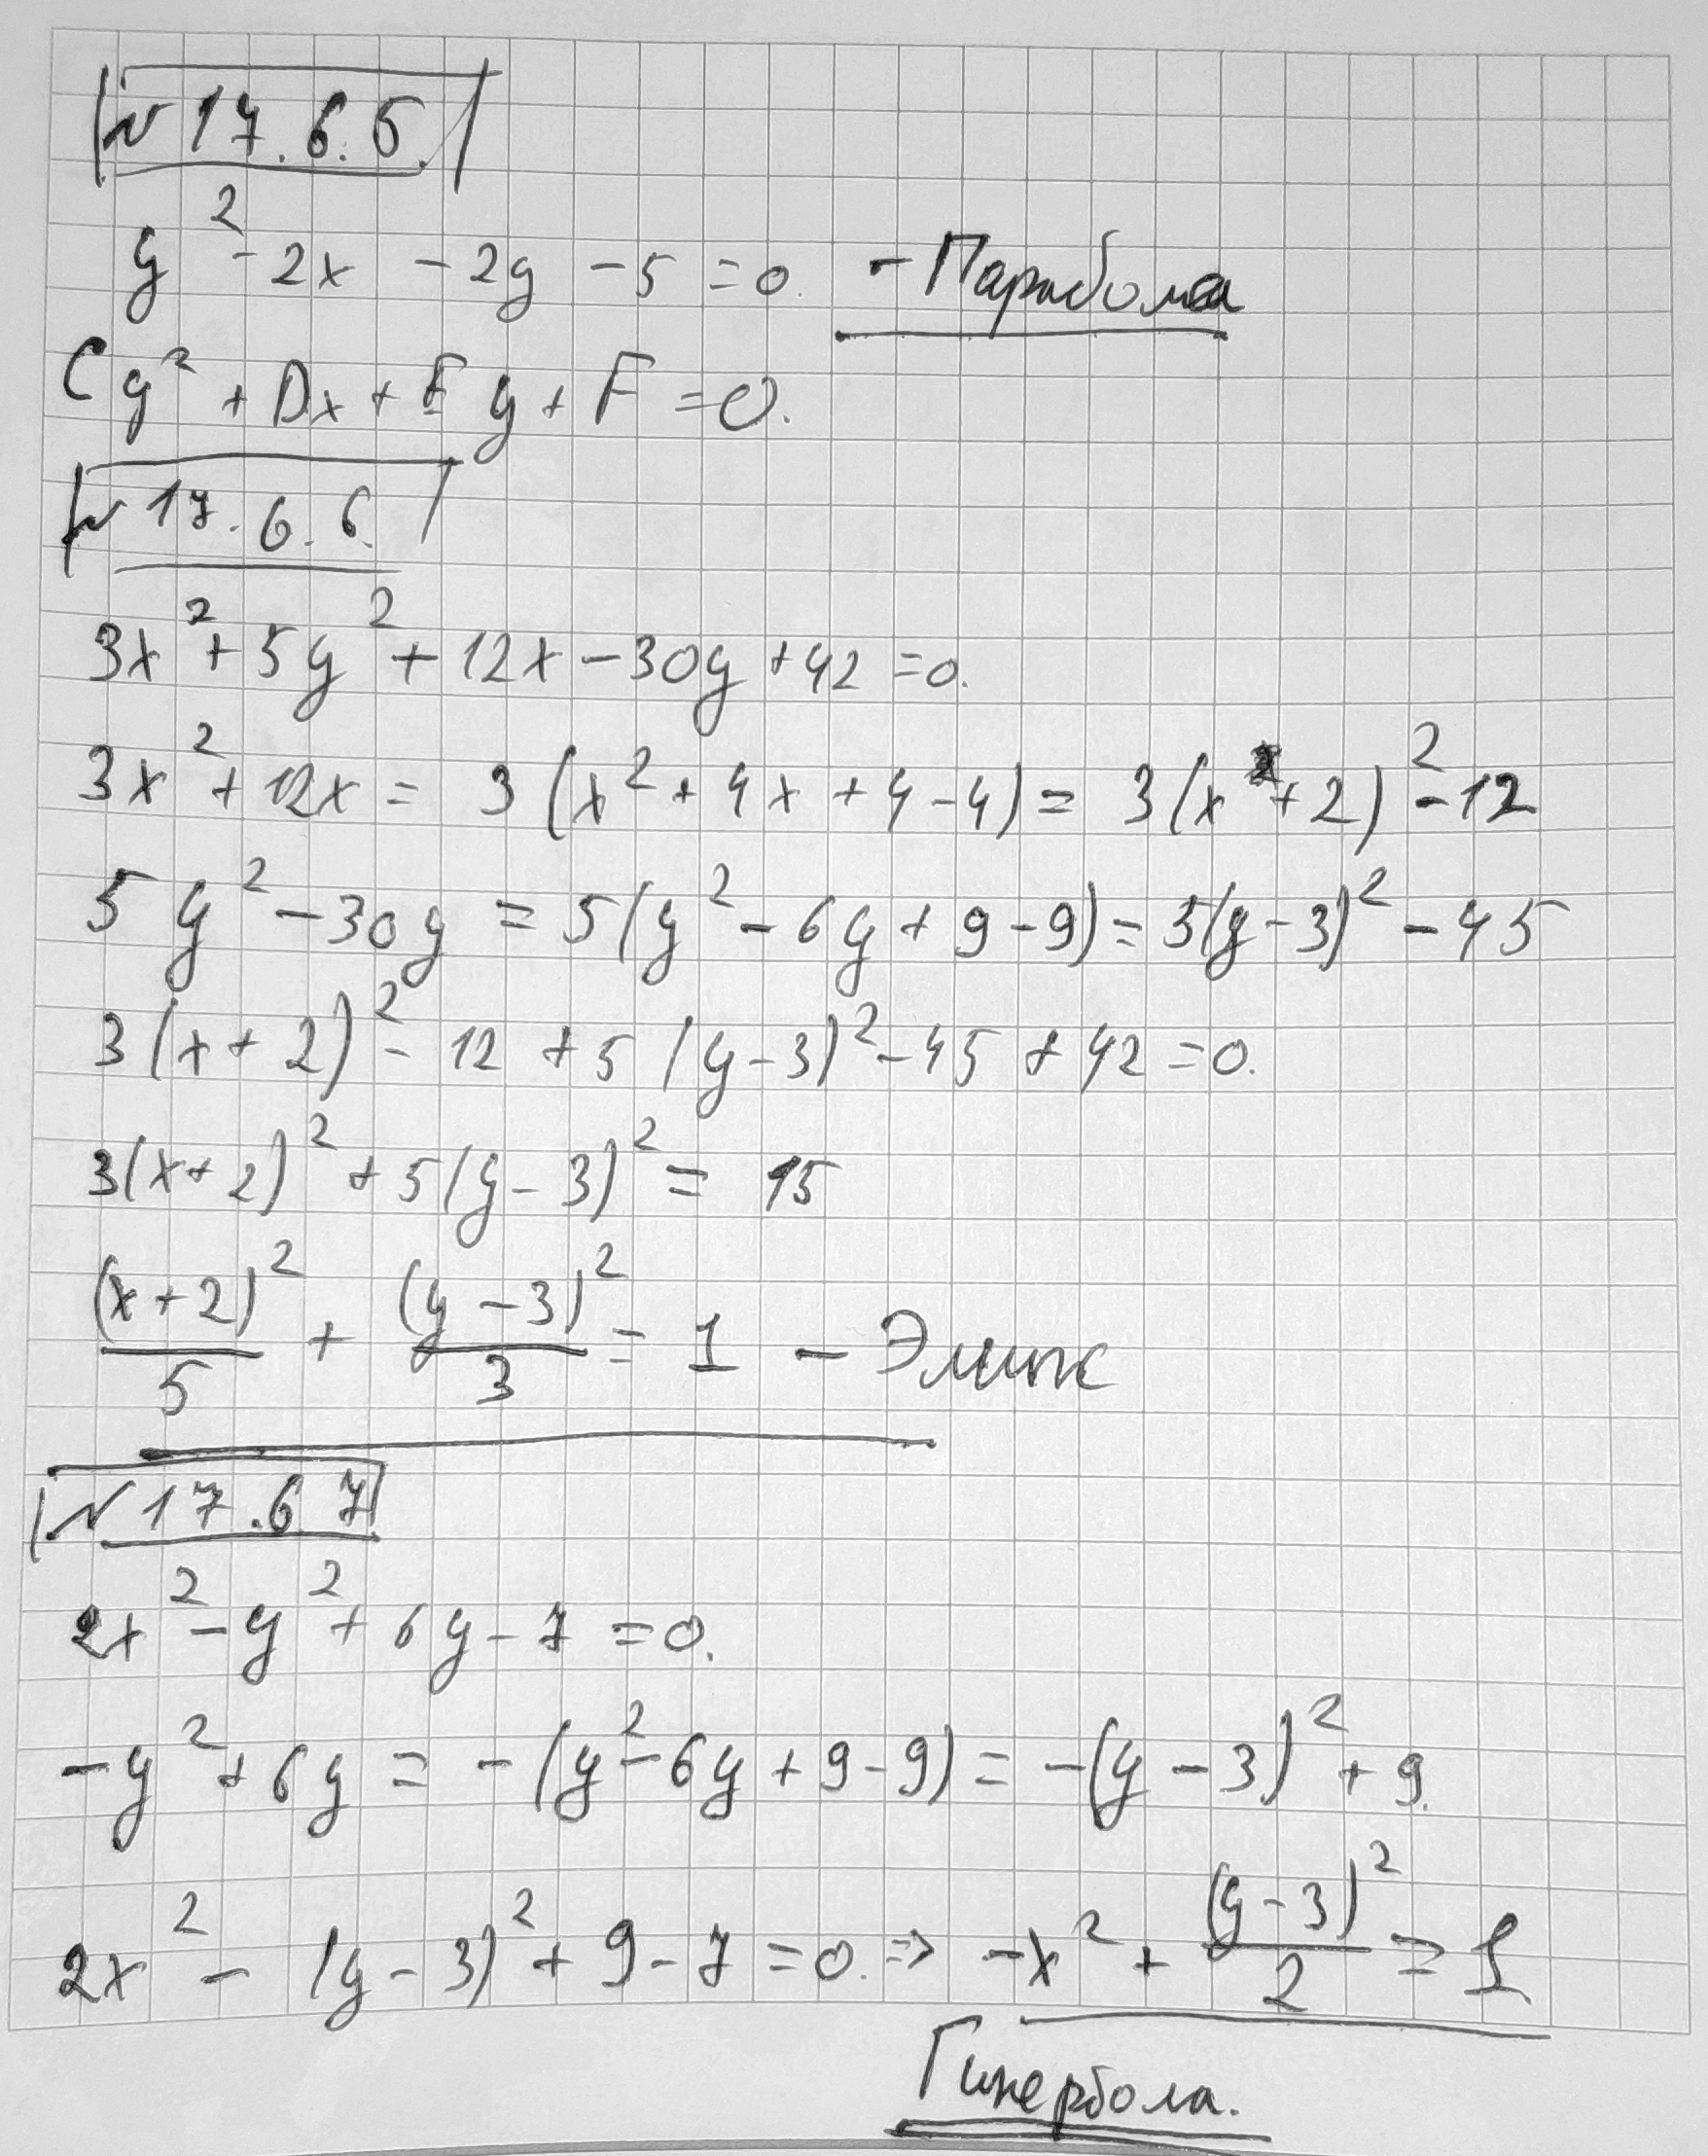 № 17.6.5.
y² - 2x - 2y - 5 = 0. - Парабола
Cy² + Dx + Ey + F = 0.
№ 17.6.6.
3x² + 5y² + 12x - 30y + 42 = 0.
3x² + 12x = 3(x² + 4x + 4 - 4) = 3(x + 2)² - 12
5y² - 30y = 5(y² - 6y + 9 - 9) = 5(y - 3)² - 45
3(x + 2)² - 12 + 5(y - 3)² - 45 + 42 = 0.
3(x + 2)² + 5(y - 3)² = 15
(x + 2)²/5 + (y - 3)²/3 = 1 - Элипс
№ 17.6.7
2x² - y² + 6y - 7 = 0.
-y² + 6y = -(y² - 6y + 9 - 9) = -(y - 3)² + 9.
2x² - (y - 3)² + 9 - 7 = 0. => -x² + (y - 3)²/2 = 1
Гипербола.